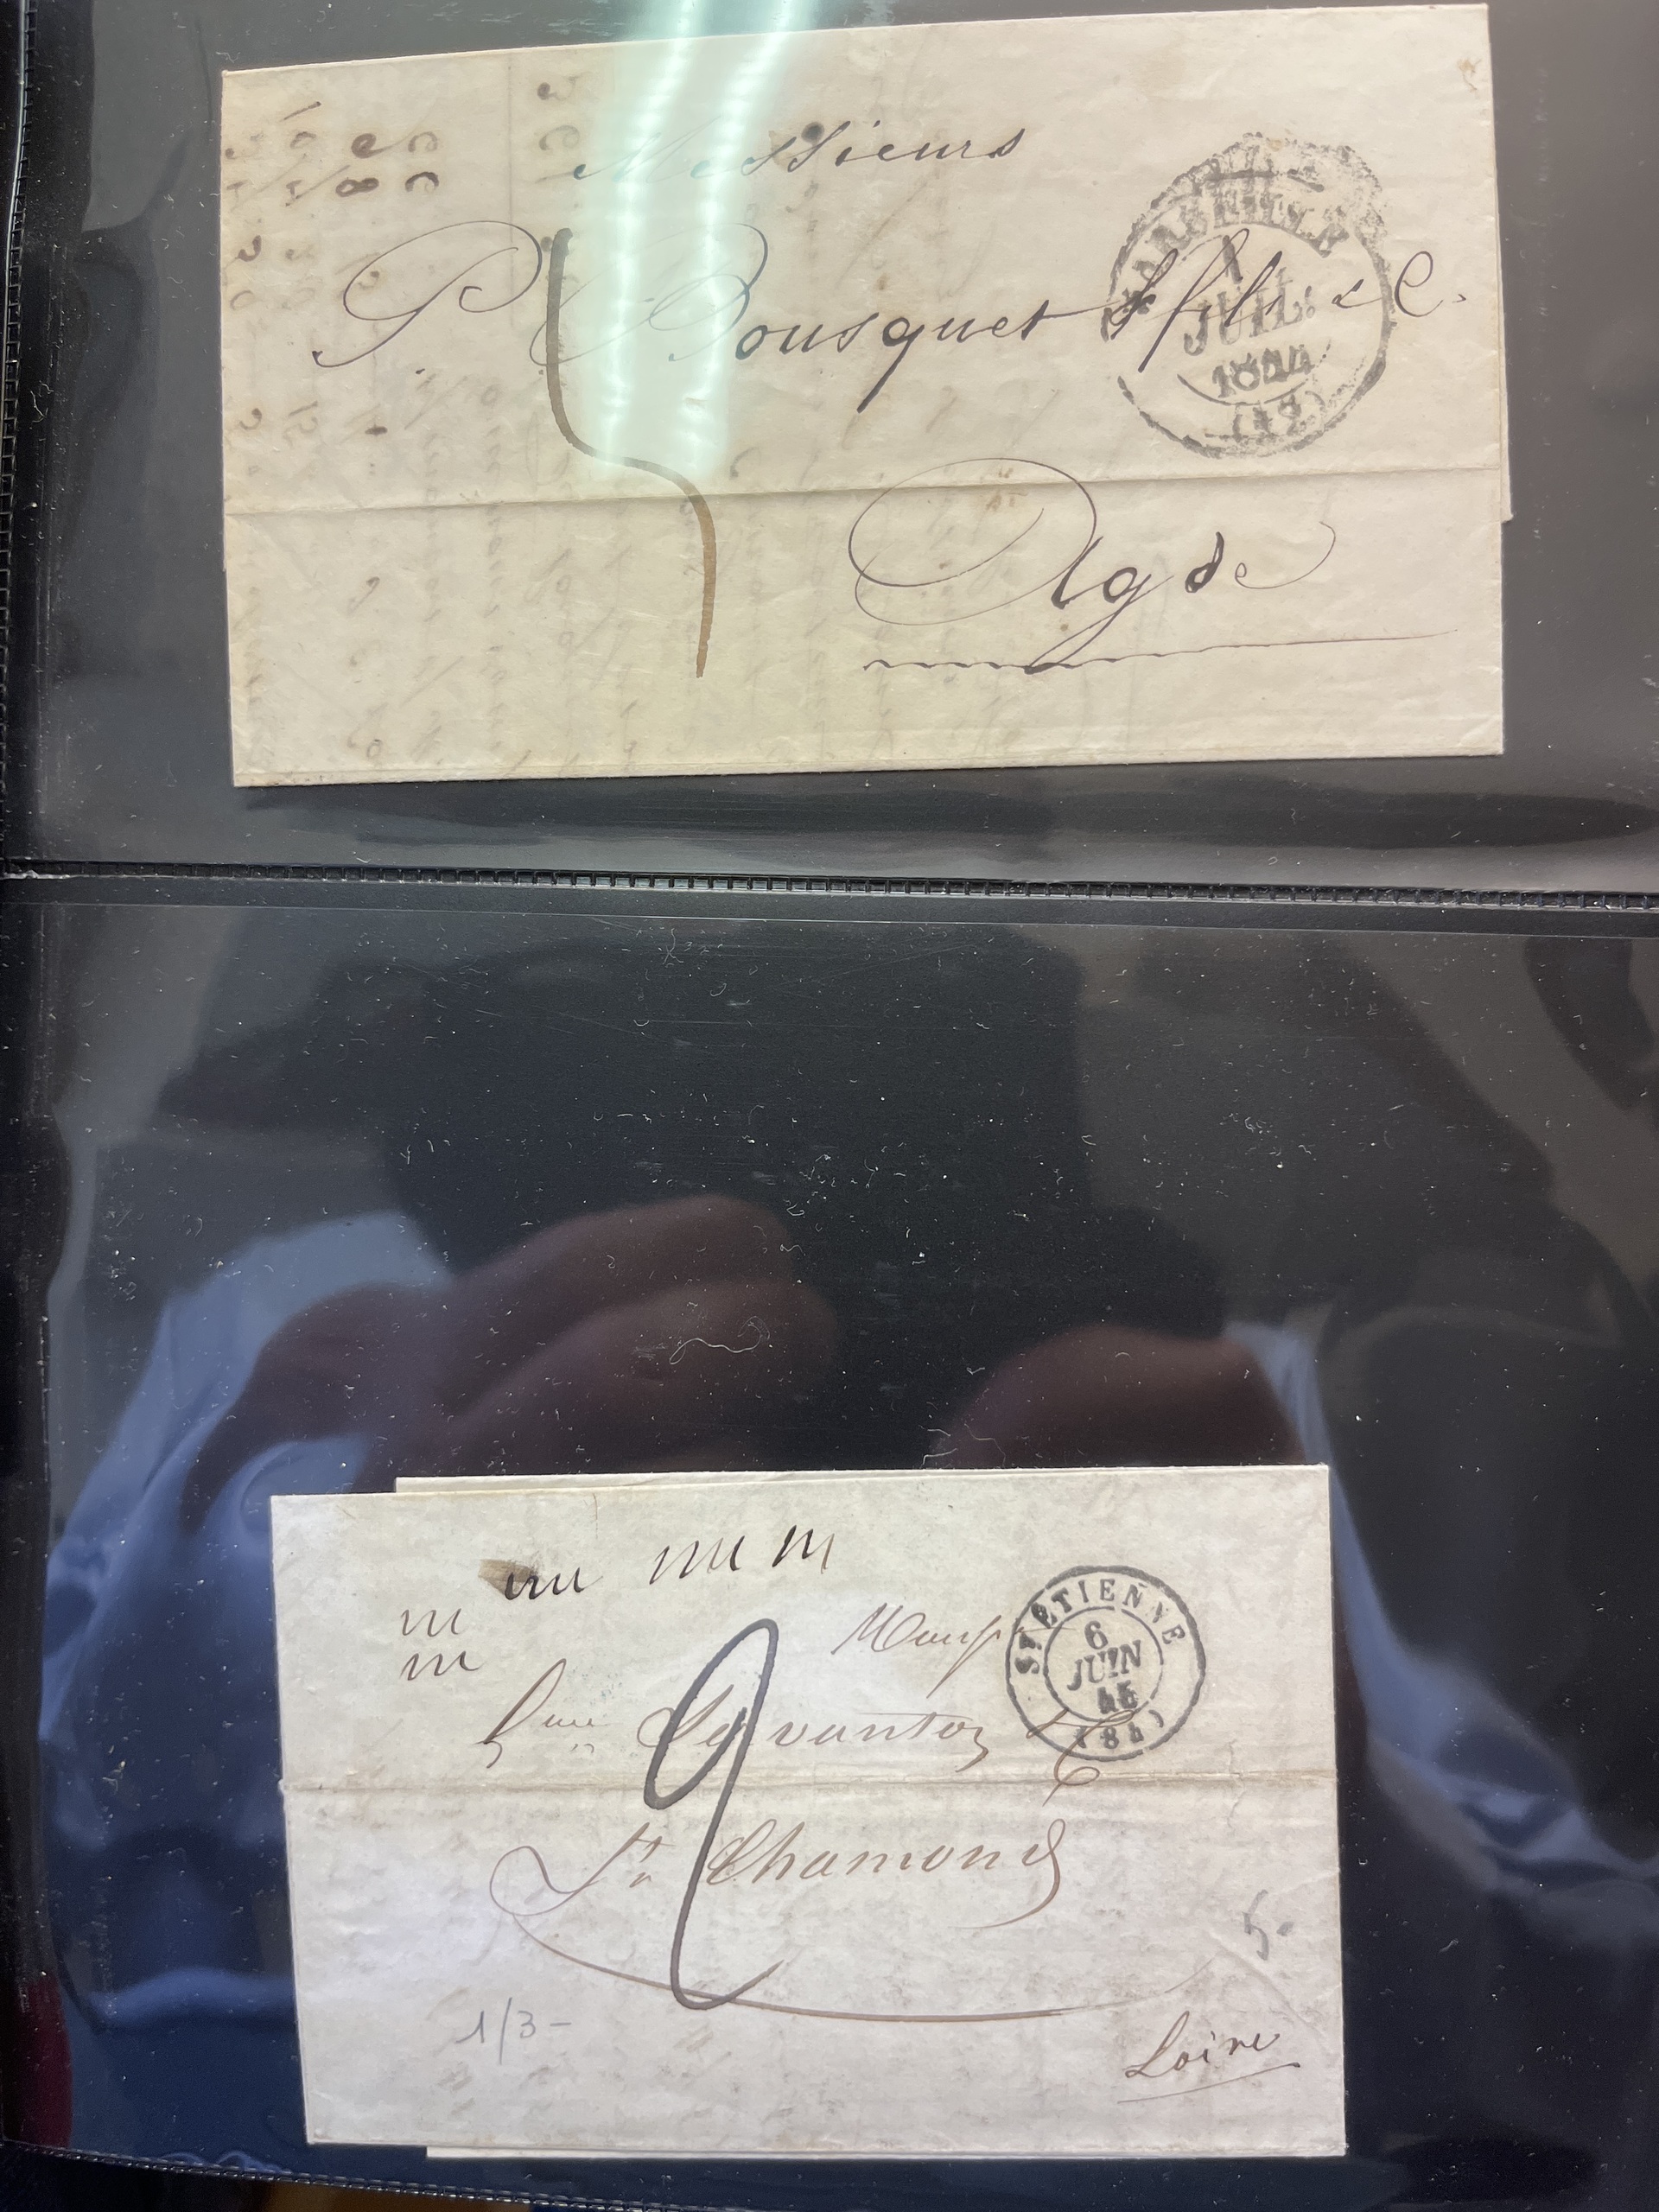 Messieurs
P. Bousquet & fils & C.
Agde
MARSEILLE
1
JUIL.
1844
(12)
5
ST ETIENNE
6
JUIN
45
(84)
2
St Chamond
5-
1/3-
Loire